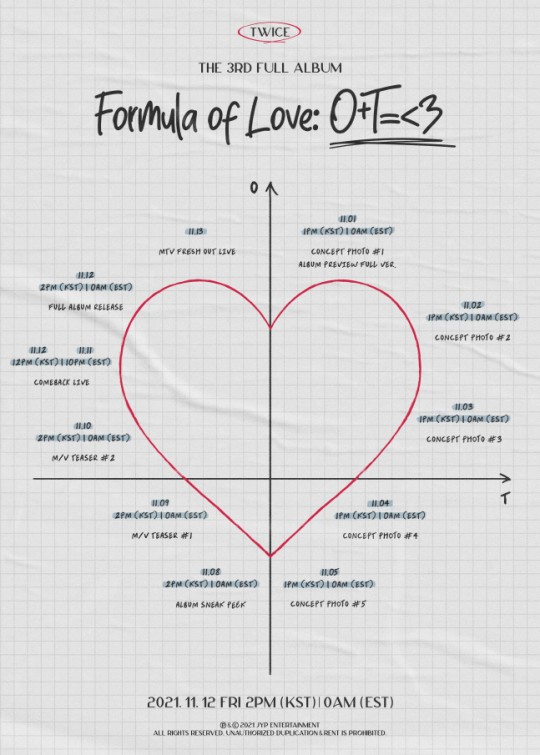 TWICE
THE 3RD FULL ALBUM
Formula of Love: O+T=<3
O
11.01
1PM (KST) | 0AM (EST)
CONCEPT PHOTO #1
ALBUM PREVIEW FULL VER.
11.02
1PM (KST) | 0AM (EST)
CONCEPT PHOTO #2
11.03
1PM (KST) | 0AM (EST)
CONCEPT PHOTO #3
T
11.04
1PM (KST) | 0AM (EST)
CONCEPT PHOTO #4
11.05
1PM (KST) | 0AM (EST)
CONCEPT PHOTO #5
11.08
2PM (KST) | 0AM (EST)
ALBUM SNEAK PEEK
11.09
2PM (KST) | 0AM (EST)
M/V TEASER #1
11.10
2PM (KST) | 0AM (EST)
M/V TEASER #2
11.12 11.11
12PM (KST) | 10PM (EST)
COMEBACK LIVE
11.12
2PM (KST) | 0AM (EST)
FULL ALBUM RELEASE
11.13
MTV FRESH OUT LIVE
2021. 11. 12 FRI 2PM (KST) | 0AM (EST)
℗&© 2021 JYP ENTERTAINMENT
ALL RIGHTS RESERVED. UNAUTHORIZED DUPLICATION & RENT IS PROHIBITED.